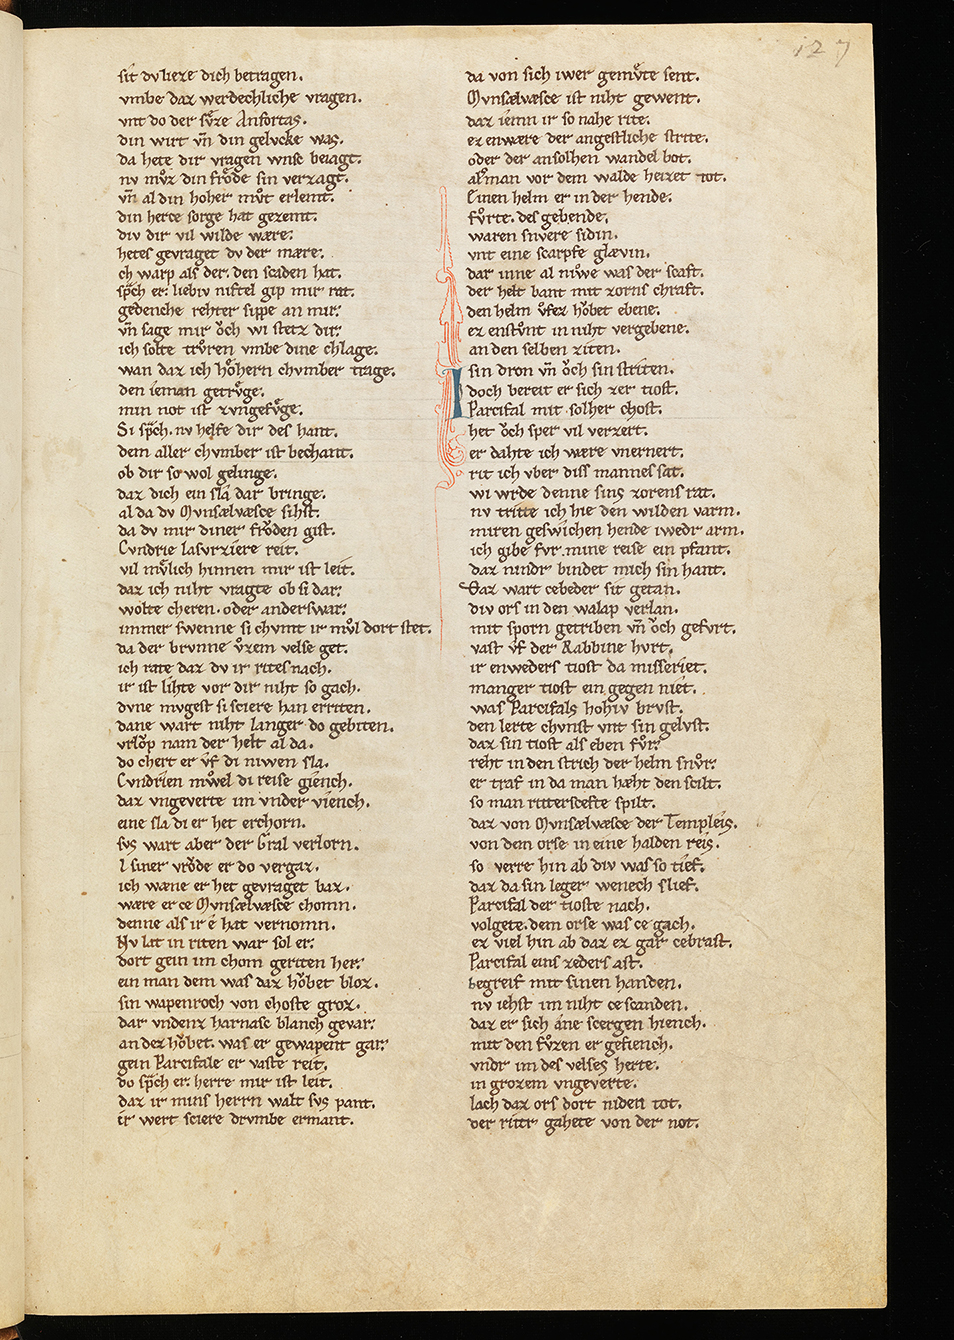 127
sit dv lieze dich betragen.
vmbe daz werdechliche vragen.
vnt do der sv̊ze Anfortas.
din wirt vn̄ din gelvcke was.
da hete dir vragen wnsc beiagt.
nv mv̊z din frǒde sin verzagt.
vn̄ al din hoher mv̊t erlemt.
din herce sorge hat gezemt.
div dir vil wilde wære.
hetes gevraget dv der mære.
ch warp als der. den scaden hat.
sp̄ch er. liebiv niftel gip mir rat.
gedenche rehter sippe an mir.
vn̄ sage mir ǒch wi stetz dir.
ich solte trv̊ren vmbe dine chlage.
wan daz ich hǒhern chvmber trage.
den ieman getrv̊ge.
min not ist zvngefv̊ge.
Si sp̄ch. nv helfe dir des hant.
dem aller chvmber ist bechant.
ob dir so wol gelinge.
daz dich ein sla dar bringe.
al da dv Mvnsælvæsce sihst.
da dv mir diner frǒden gist.
Cvndrie lasurziere reit.
vil nv̊lich hinnen mir ist leit.
daz ich niht vragte ob si dar.
wolte cheren. oder anderswar.
immer swenne si chvmt ir mv̊l dort stet.
da der brvnne v̊zem velse get.
ich rate daz dv ir rites nach.
ir ist lihte vor dir niht so gach.
dvne mvgest si sciere han erriten.
dane wart niht langer do gebiten.
vrlǒp nam der helt al da.
do chert er v̊f di niwen sla.
Cvndrien mv̊el di reise giench.
daz vngeverte im vnder viench.
eine sla di er het erchorn.
svs wart aber der Gral verlorn.
l siner vrǒde er do vergaz.
ich wæne er het gevraget baz.
wære er ce Mvnsælvæsce chomn.
denne als ir e hat vernomn.
Nv lat in riten war sol er.
dort gein im chom geriten her.
ein man dem was daz hǒbet bloz.
sin wapenroch von choste groz.
dar vndenz harnasc blanch gevar.
an dez hǒbet. was er gewapent gar.
gein Parcifale er vaste reit.
do sp̄ch er. herre mir ist leit.
daz ir mins herrn walt svs pant.
ir wert sciere drvmbe ermant.
da von sich iwer gemv̊te sent.
Mvnsælvæsce ist niht gewent.
daz iemn ir so nahe rite.
ez enwære der angestliche strite.
oder der ansolhen wandel bot.
als man vor dem walde heizet tot.
Einen helm er in der hende.
fv̊rte. des gebende.
waren snvere sidin.
vnt eine scarpfe glævin.
dar inne al niwe was der scaft.
der helt bant mit zorns chraft.
den helm v̊fez hǒbet ebene.
ez enstv̊nt in niht vergebene.
an den selben ziten.
sin dron vn̄ ǒch sin striten.
Idoch bereit er sich zer tiost.
Parcifal mit solher chost.
het ǒch sper vil verzert.
er dahte ich wære vnernert.
rit ich vber diss mannes sat.
wi wrde denne sins zorens rat.
nv tritte ich hie den wilden varm.
miren geswichen hende iwedr arm.
ich gibe fvr mine reise ein pfant.
daz nindr bindet mich sin hant.
Daz wart cebeder sit getan.
div ors in den walap verlan.
mit sporn getriben vn̄ ǒch gefvrt.
vast v̊f der Rabbine hvrt.
ir enweders tiost da misseriet.
manger tiost ein gegen niet.
was Parcifals hohiv brvst.
den lerte chvnst vnt sin gelvst.
daz sin tiost als eben fv̊r.
reht in den strich der helm snv̊r.
er traf in da man hæht den scilt.
so man ritterscefte spilt.
daz von Mvnsælvæsce der Templeis.
von dem orse in eine halden reis.
so verre hin ab div was so tief.
daz da sin leger wenech slief.
Parcifal der tioste nach.
volgete. dem orse was ce gach.
ez viel hin ab daz ez gar cebrast.
Parcifal eins zeders ast.
begreif mit sinen handen.
nv iehst im niht ce scanden.
daz er sich ane scergen hiench.
mit den fv̊zen er gefiench.
vndr im des velses herte.
in grozem vngeverte.
lach daz ors dort niden tot.
der rittr gahete von der not.